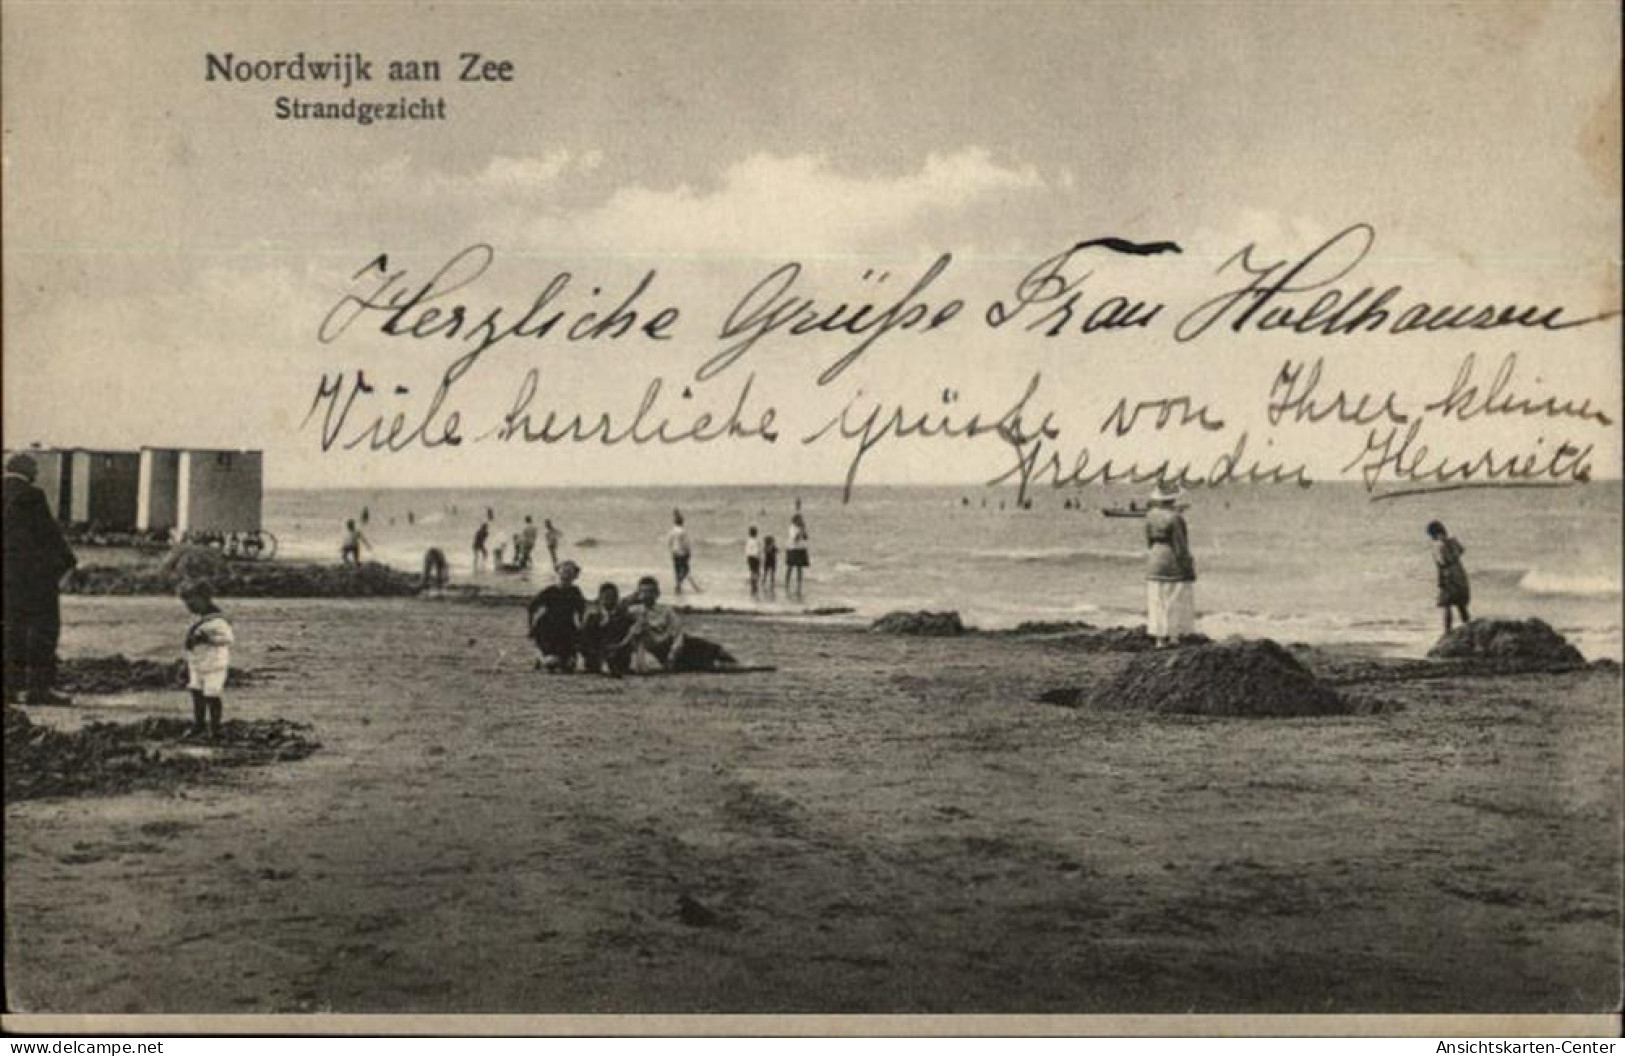 Noordwijk aan Zee
Strandgezicht
Herzliche Grüße Frau Holthausen
Viele herzliche Grüsse von Ihrer kleinen
Freundin Henriette
www.delcampe.net
Ansichtskarten-Center